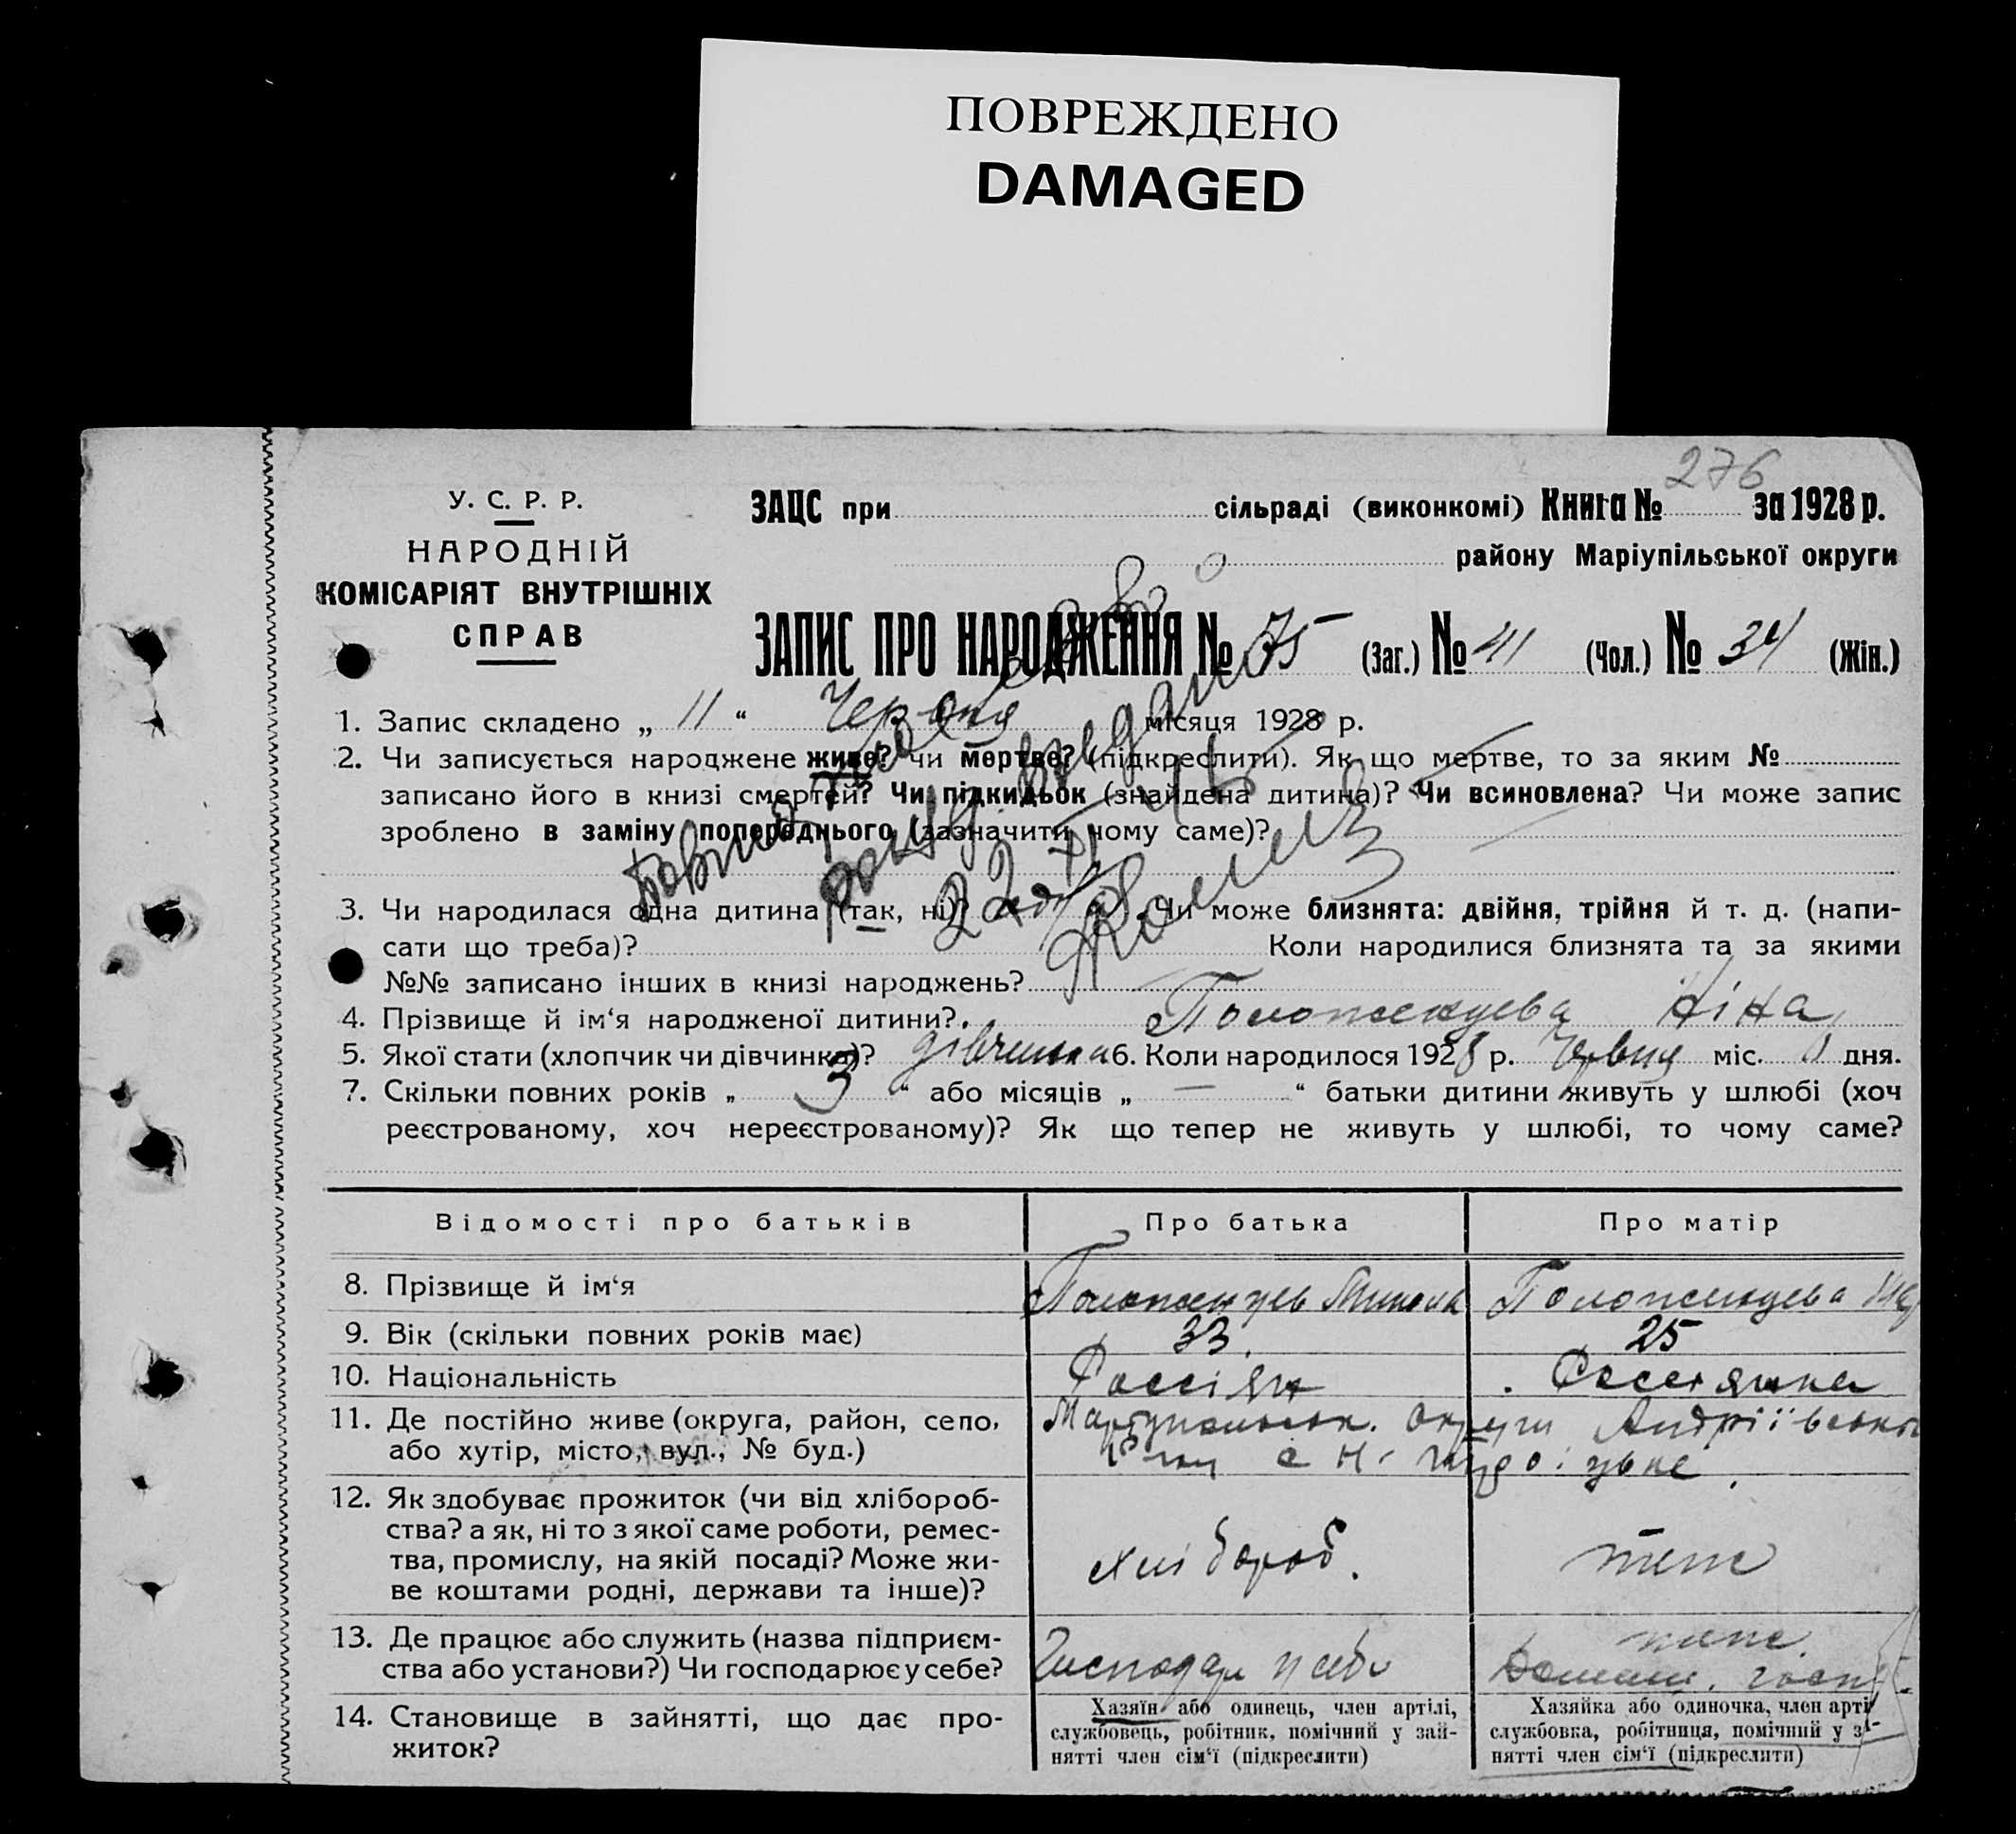 ПОВРЕЖДЕНО
DAMAGED
276
У. С. Р. Р.
НАРОДНІЙ
КОМІСАРІЯТ ВНУТРІШНІХ
СПРАВ
ЗАЦС при сільраді (виконкомі) Книга № за 1928 р.
району Маріупільської округи
ЗАПИС ПРО НАРОДЖЕННЯ № 75 (Заг.) № 41 (Чол.) № 34 (Жін.)
1. Запис складено „ 11 “ Червня місяця 1928 р.
2. Чи записується народжене живе? чи мертве? (підкреслити). Як що мертве, то за яким №
записано його в книзі смертей? Чи підкидьок (знайдена дитина)? Чи всиновлена? Чи може запис
зроблено в заміну попереднього (зазначити чому саме)?
3. Чи народилася одна дитина (так, ні)? Чи може близнята: двійня, трійня й т. д. (напи-
сати що треба)? Коли народилися близнята та за якими
№№ записано інших в книзі народжень?
4. Прізвище й ім‘я народженої дитини? Положенцева Ніна
5. Якої стати (хлопчик чи дівчинка)? дівчинка 6. Коли народилося 1928 р. Червня міс. дня.
7. Скільки повних років „ 3 “ або місяців „ — “ батьки дитини живуть у шлюбі (хоч
реєстрованому, хоч нереєстрованому)? Як що тепер не живуть у шлюбі, то чому саме?
Відомості про батьків Про батька Про матір
8. Прізвище й ім‘я Положенцев Микола Положенцева
9. Вік (скільки повних років має) 33 25
10. Національність Россіян Россіянка
11. Де постійно живе (округа, район, село, Маріупольськ. округи Андріївськ
або хутір, місто, вул., № буд.) с Н.
12. Як здобуває прожиток (чи від хлібороб-
ства? а як, ні то з якої саме роботи, ремес-
тва, промислу, на якій посаді? Може жи-
ве коштами родні, держави та інше)?
хлібороб. теж
13. Де працює або служить (назва підприєм-
ства або установи?) Чи господарює у себе?
Господар у себе
14. Становище в зайнятті, що дає про-
житок?
Хазяїн або одинець, член артілі,
службовець, робітник, помічний у зай-
нятті член сім‘ї (підкреслити)
Хазяйка або одиночка, член арті
службовка, робітниця, помічний у з
нятті член сім‘ї (підкреслити)